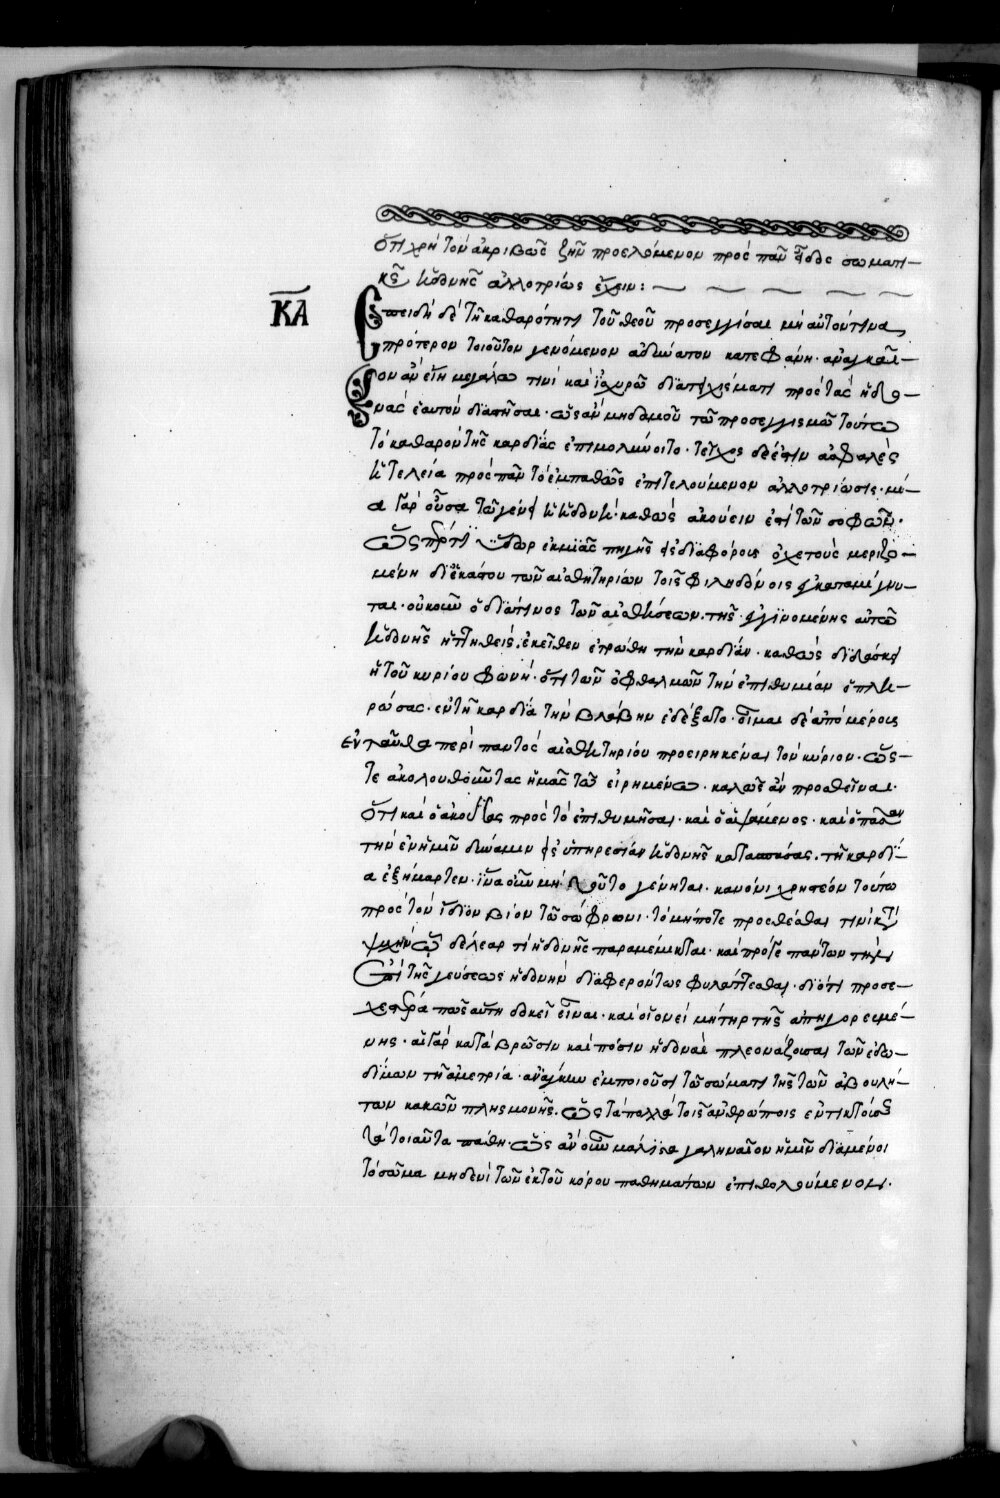 ὅτι χρὴ τὸν ἀκριβῶς ζῆν προελόμενον πρὸς πᾶν εἶδος σωματι-
κῆς ἡδονῆς ἀλλοτρίως ἔχειν:
ΚΑ
Ἐπειδὴ δὲ τῇ καθαρότητι τοῦ θεοῦ προσεγγίσαι μὴ αὐτόν τινα
πρότερον τοιοῦτον γενόμενον ἀδύνατον κατεφάνη· ἀναγκαῖ-
ον ἂν εἴη μεγάλω τινὶ καὶ ἰσχυρῶ διατειχίσματι πρὸς τὰς ἡδο-
νὰς ἑαυτὸν διαστῆσαι· ὡς ἂν μηδαμοῦ τῶ προσεγγισμῶ τούτω
τὸ καθαρὸν τῆς καρδίας ἐπιμολύνοιτο· τεῖχος δέ ἐστιν ἀσφαλὲς
ἡ τελεία πρὸς πᾶν τὸ ἐμπαθῶς ἐπιτελούμενον ἀλλοτρίωσις· μί-
α γὰρ οὖσα τῶ γένει ἡ ἡδονὴ· καθὼς ἀκούειν ἐστὶ τῶν σοφῶν·
ὥσπερ τι ὕδωρ ἐκ μιᾶς πηγῆς εἰς διαφόρους ὀχετοὺς μεριζο-
μένη δι' ἑκάστου τῶν αἰσθητηρίων τοῖς φιληδόνοις ἐγκαταμίγνυ-
ται· οὐκοῦν ὁ διά τινος τῶν αἰσθήσεων· τῆς ἐγγινομένης αὐτῶ
ἡδονῆς ἡττηθεὶς· ἐκεῖθεν ἐτρώθη τὴν καρδίαν· καθὼς διδάσκει
ἡ τοῦ κυρίου φωνή· ὅτι τῶν ὀφθαλμῶν τὴν ἐπιθυμίαν ὁ πλη-
ρώσας· ἐν τῇ καρδία τὴν βλάβην ἐδέξατο· οἶμαι δὲ ἀπὸ μέρους
ἐνταῦθα περὶ παντὸς αἰσθητηρίου προειρηκέναι τὸν κύριον· ὥς-
τε ἀκολουθοῦντας ἡμᾶς τῶ εἰρημένω· καλῶς ἂν προσθεῖναι·
ὅτι καὶ ὁ ἀκούσας πρὸς τὸ ἐπιθυμῆσαι· καὶ ὁ ἁψάμενος· καὶ ὁ πᾶσαν
τὴν ἐν ἡμῖν δύναμιν εἰς ὑπηρεσίαν ἡδονῆς κατασπάσας· τῇ καρδί-
α ἐξήμαρτεν· ἵνα οὖν μὴ τοῦτο γένηται· κανόνι χρηστέον τούτω
πρὸς τὸν ἴδιον βίον τῶ σώφρονι· τὸ μήποτε προσθέσθαι τινὶ κατὰ
ψυχὴν ὧ δέλεαρ τι ἡδονῆς παραμέμικται· καὶ πρό γε πάντων τὴν
ἐπὶ τῆς γεύσεως ἡδονὴν διαφερόντως φυλάττεσθαι· διότι προσε-
χεστέρα πως αὕτη δοκεῖ εἶναι· καὶ οἱονεὶ μήτηρ τῆς ἀπηγορευμέ-
νης· αἱ γὰρ κατὰ βρῶσιν καὶ πόσιν ἡδοναὶ πλεονάζουσαι τῶν ἐδω-
δίμων τῇ ἀμετρία· ἀνάγκην ἐμποιοῦσι τῶ σώματι τῆς τῶν ἀβουλή-
των κακῶν πλησμονῆς· ὡς τὰ πολλὰ τοῖς ἀνθρώποις ἐντικτούσης
τὰ τοιαῦτα πάθη· ὡς ἂν οὖν μάλιστα γαληναῖον ἡμῖν διαμένοι
τὸ σῶμα μηδενὶ τῶν ἐκ τοῦ κόρου παθημάτων ἐπιθολούμενον·